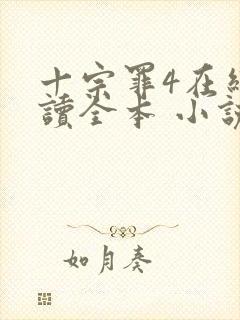 十宗罪4在
讀全本 小
如月奏